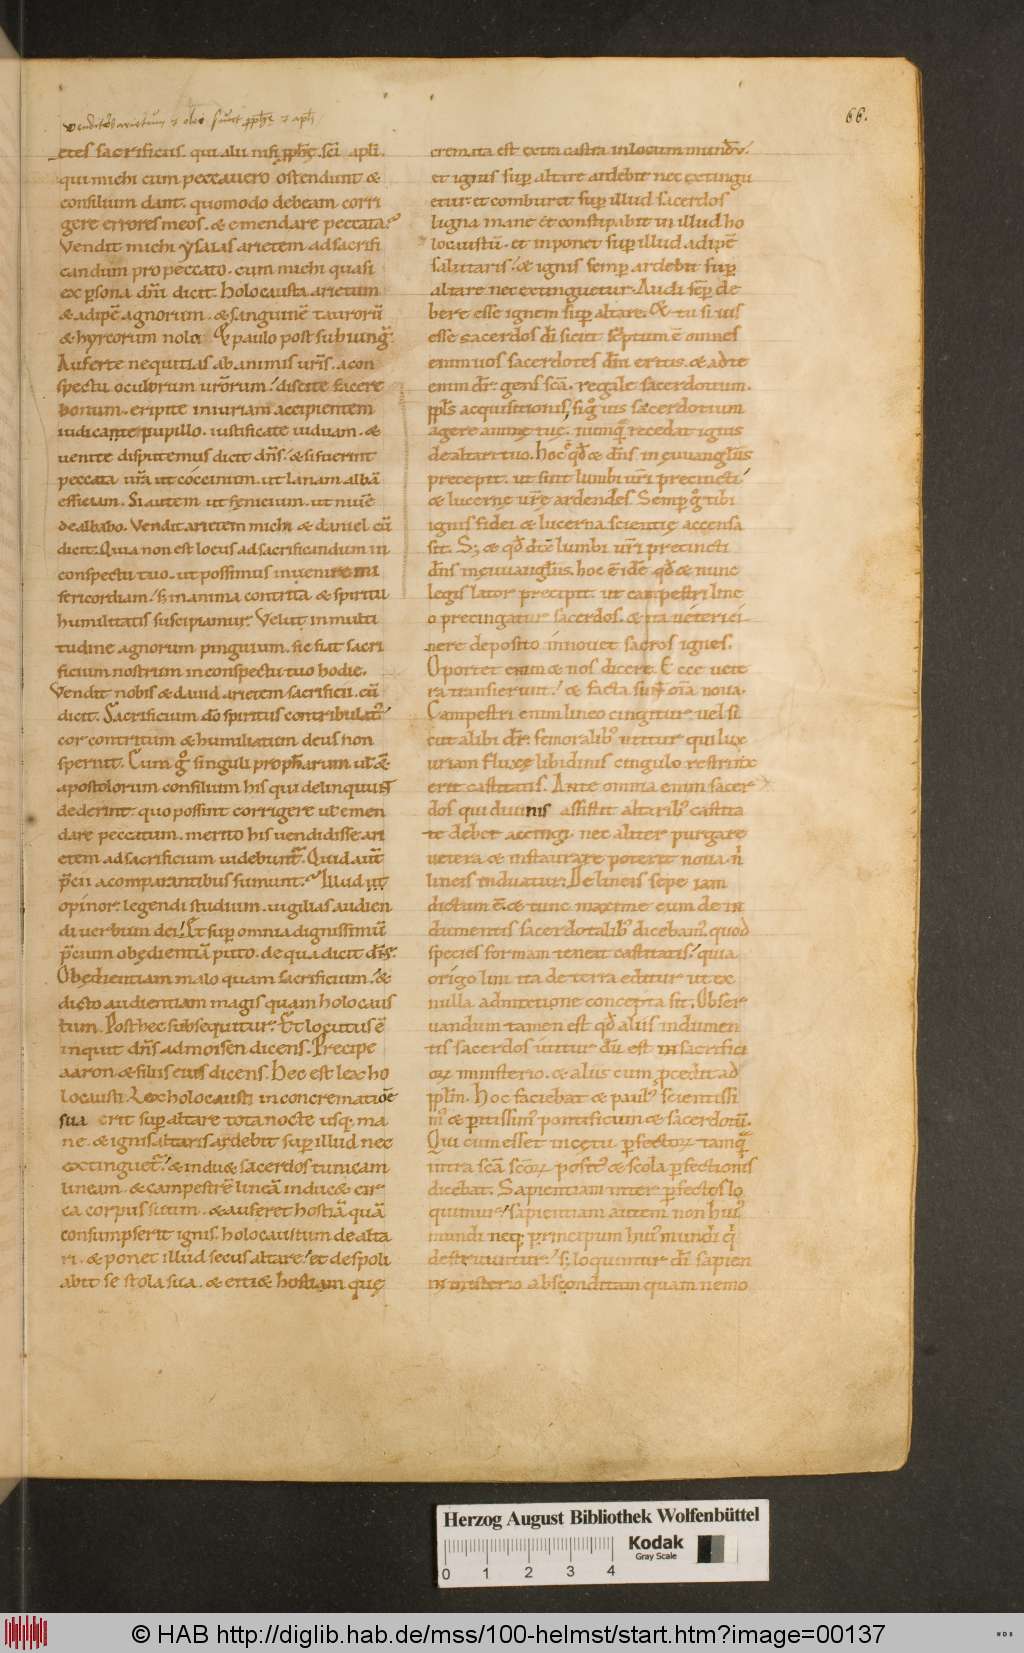 venditores arietum & oleo sunt pphę & apłi
66.
etes sacrificiis. qui alii nisi pphę. sci apli.
qui michi cum peccavero ostendunt &
consilium dant. quomodo debeam corri
gere errores meos. & emendare peccata?
Vendit michi ysaias arietem ad sacrifi
candum pro peccato. cum michi quasi
ex psona dni dicit. holocausta arietum
& adipē agnorum. & sanguinē taurorū
& hyrcorum nolo. Et paulo post subiungit.
Auferte nequitias ab animis vris. a con
spectu oculorum vrorum. discite facere
bonum. eripite iniuriam accipientem
iudicate pupillo. iustificate viduam. &
venite disputemus dicit dns. & si fuerint
peccata vra ut coccinum. ut lanam albā
efficiam. Si autem ut fenicium. ut nivē
dealbabo. Vendit arietem michi & daniel cū
dicit. Quia non est locus ad sacrificandum in
conspectu tuo. ut possimus invenire mi
sericordiam. s; in anima contrita & spiritu
humilitatis suscipiamur. Velut in multi
tudine agnorum pinguium. sic fiat sacri
ficium nostrum in conspectu tuo hodie.
Vendit nobis & david arietem sacrificii. cū
dicit. Sacrificium do spiritus contribulat9
cor contritum & humiliatum deus non
spernit. Cum g° singuli prophetarum vel
apostolorum consilium his qui delinquunt
dederint. quo possint corrigere vel emen
dare peccatum. merito his vendidisse ari
etem ad sacrificium videbunt. Quid aut
pcii a comparantibus sumunt? Illud ut
opinor. legendi studium. vigilias audien
di verbum dei. Et sup omnia dignissimū
pcium obędientiā puto. de qua dicit dns.
Obędientiam malo quam sacrificium. &
dicto audientiam magis quam holocaus
tum. Post hec subsequitur. Et locutus ē
inquit dns ad moisen dicens. Precipe
aaron & filiis eius dicens. Hec est lex ho
locausti. Lex holocausti in concrematiōe
sua erit sup altare tota nocte usq. ma
ne. & ignis altaris ardebit sup illud nec
extinguet. & indu& sacerdos tunicam
lineam. & campestrē lineā indu& cir
ca corpus suum. & auferet hostiā quā
consumpserit ignis. holocaustum de alta
ri. & ponet illud secus altare. et despoli
abit se stola sua. & eici& hostiam quę
cremata est extra castra in locum mundū.
et ignis sup altare ardebit nec extingu
etur. et comburet sup illud sacerdos
ligna mane et constipabit in illud ho
locaustū. et inponet sup illud adipē
salutaris. & ignis semp ardebit sup
altare nec extinguetur. Audi semp de
bere esse ignem sup altare. Et tu si vis
esse sacerdos di sicut scriptum ē omnes
enim vos sacerdotes dni eritis. & ad te
enim dr. gens sca. regale sacerdotium.
ppls acquisitionis. si g° vis sacerdotium
agere animę tuę. numq recedat ignis
de altari tuo. Hoc ē qd & dns in ęvvangliis
precepit. ut sint lumbi vri precincti
& lucerne vrę ardendes. Semp g° tibi
ignis fidei & lucerna scientię accensa
sit. S; & qd dic lumbi vri precincti
dns in ęvvangliis. hoc ē idē qd & nunc
legis lator precipit. ut campestri line
o precingatur sacerdos. & ita veteri ci
nere deposito innovet sacros ignes.
Oportet enim & nos dicere. Ecce vete
ra transierunt. & facta sunt oia nova.
Campestri enim lineo cingitur. vel si
cut alibi dr. femoralib9 utitur qui lux
uriam fluxę libidinis cingulo restrinx
erit castitatis. Ante omnia enim sacer
dos qui divinis assistit altarib9 castita
te debet accingi. nec aliter purgare
vetera & instaurare poterit nova. n
lineis induatur. De lineis sepe iam
dictum ē. & tunc maxime cum de in
dumentis sacerdotalib9 dicebam9. quod
species formam teneat castitatis. quia
origo lini ita de terra editur ut ex
nulla admixtione concepta sit. Obser
vandum tamen est qd aliis indumen
tis sacerdos utitur dū est in sacrifici
orum ministerio. & aliis cum pcedit ad
pplm. Hoc faciebat & paul9 scientissi
m9 & peritissim9 pontificum & sacerdotū.
Qui cum esset in cętu pfectorum tamq
intra sca scorum posit9 & scola pfectionis
dicebat. Sapientiam inter pfectos lo
quimur. sapientiam autem non hui9
mundi neq; principum hui9 mundi qi
destruuntur. s; loquimur di sapien
in misterio absconditam quam nemo
Herzog August Bibliothek Wolfenbüttel
Kodak
Gray Scale
0 1 2 3 4
© HAB http://diglib.hab.de/mss/100-helmst/start.htm?image=00137